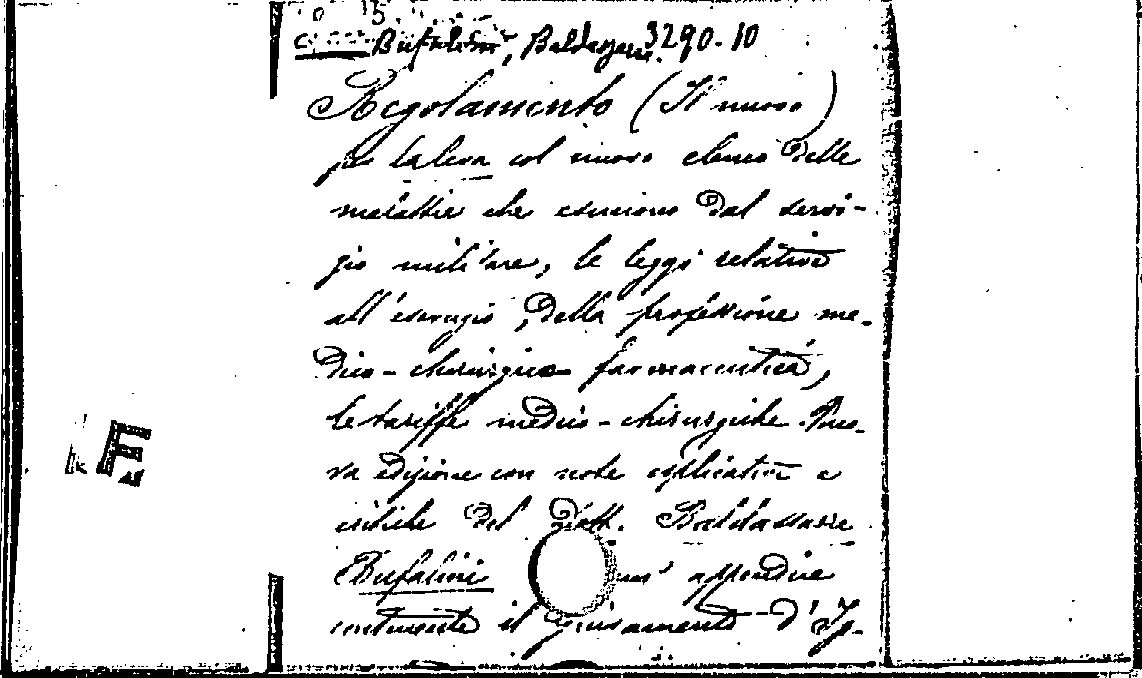 Bufalini, Baldassare. 3290.10
Regolamento (Il nuovo)
per la leva col nuovo elenco delle
malattie che esimono dal servi-
zio militare, le leggi relative
all'esercizio della professione me-
dico-chirurgico farmaceutica,
le tariffe medico-chirurgiche. Nuo-
va edizione con note esplicative e
critiche del dott. Baldassare
Bufalini un' appendice
contenente il giuramento d'Ip-